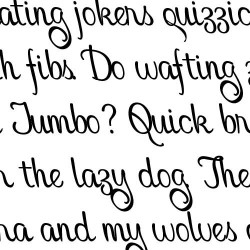 ating jokers quizzic
h fibs. Do wafting z
Jumbo? Quick br
n the lazy dog. The
na and my wolves q